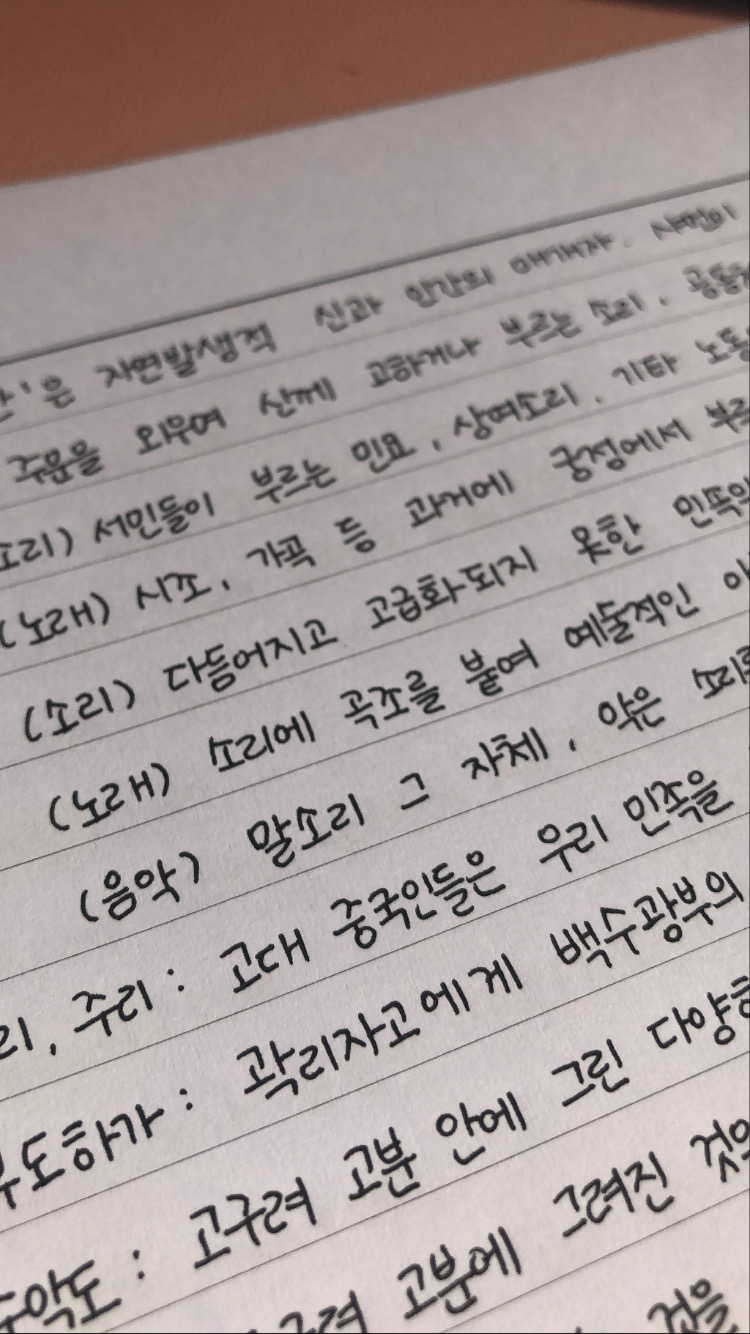 은 자연발생적 신과 인간의 매개자. 샤먼이
주문을 외우여 신께 고하거나 부르는 소리.
소리) 서민들이 부르는 민요, 상여소리. 기타
(노래) 시조, 가곡 등 과거에 궁정에서
(소리) 다듬어지고 고급화되지 못한 민족의
(노래) 소리에 곡조를 붙여 예술적인
(음악) 말소리 그 자체, 악은
리, 주리 : 고대 중국인들은 우리 민족을
도하가 : 곽리자고에게 백수광부의
악도 : 고구려 고분 안에 그린
고분에 그려진
것을